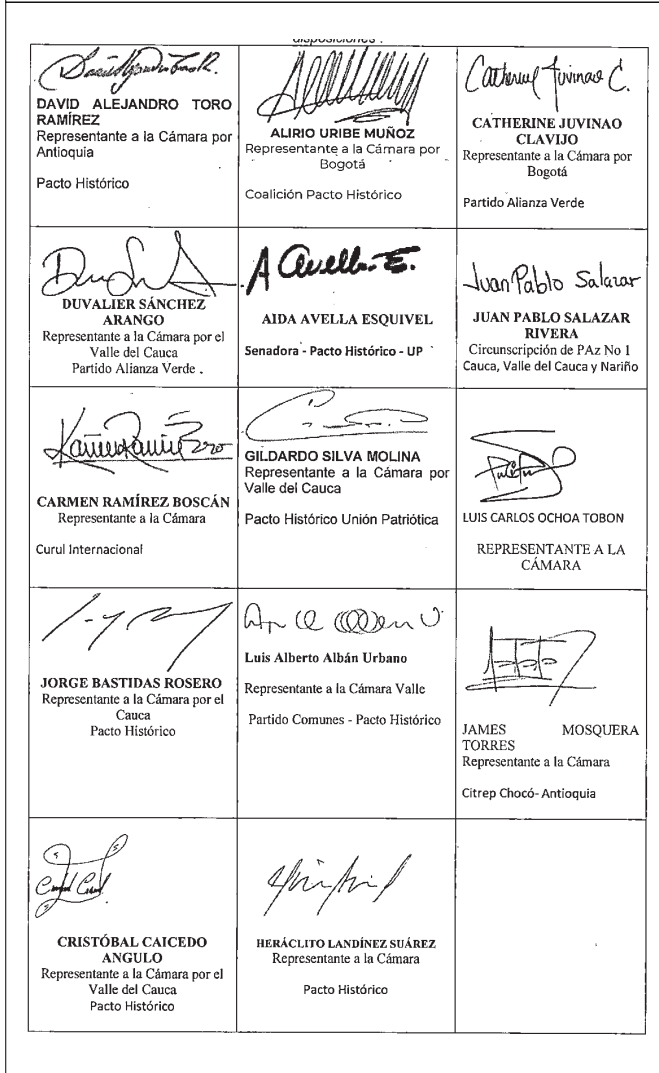 disposiciones .
DAVID ALEJANDRO TORO
RAMÍREZ
Representante a la Cámara por
Antioquia
Pacto Histórico
ALIRIO URIBE MUÑOZ
Representante a la Cámara por
Bogotá
Coalición Pacto Histórico
Catherine Juvinao C.
CATHERINE JUVINAO
CLAVIJO
Representante a la Cámara por
Bogotá
Partido Alianza Verde
DUVALIER SÁNCHEZ
ARANGO
Representante a la Cámara por el
Valle del Cauca
Partido Alianza Verde .
A Avella E.
AIDA AVELLA ESQUIVEL
Senadora - Pacto Histórico - UP
Juan Pablo Salazar
JUAN PABLO SALAZAR
RIVERA
Circunscripción de PAz No 1
Cauca, Valle del Cauca y Nariño
CARMEN RAMÍREZ BOSCÁN
Representante a la Cámara
Curul Internacional
GILDARDO SILVA MOLINA
Representante a la Cámara por
Valle del Cauca
Pacto Histórico Unión Patriótica
LUIS CARLOS OCHOA TOBON
REPRESENTANTE A LA
CÁMARA
JORGE BASTIDAS ROSERO
Representante a la Cámara por el
Cauca
Pacto Histórico
Luis Alberto Albán Urbano
Representante a la Cámara Valle
Partido Comunes - Pacto Histórico
JAMES MOSQUERA
TORRES
Representante a la Cámara
Citrep Chocó- Antioquia
CRISTÓBAL CAICEDO
ANGULO
Representante a la Cámara por el
Valle del Cauca
Pacto Histórico
HERÁCLITO LANDÍNEZ SUÁREZ
Representante a la Cámara
Pacto Histórico